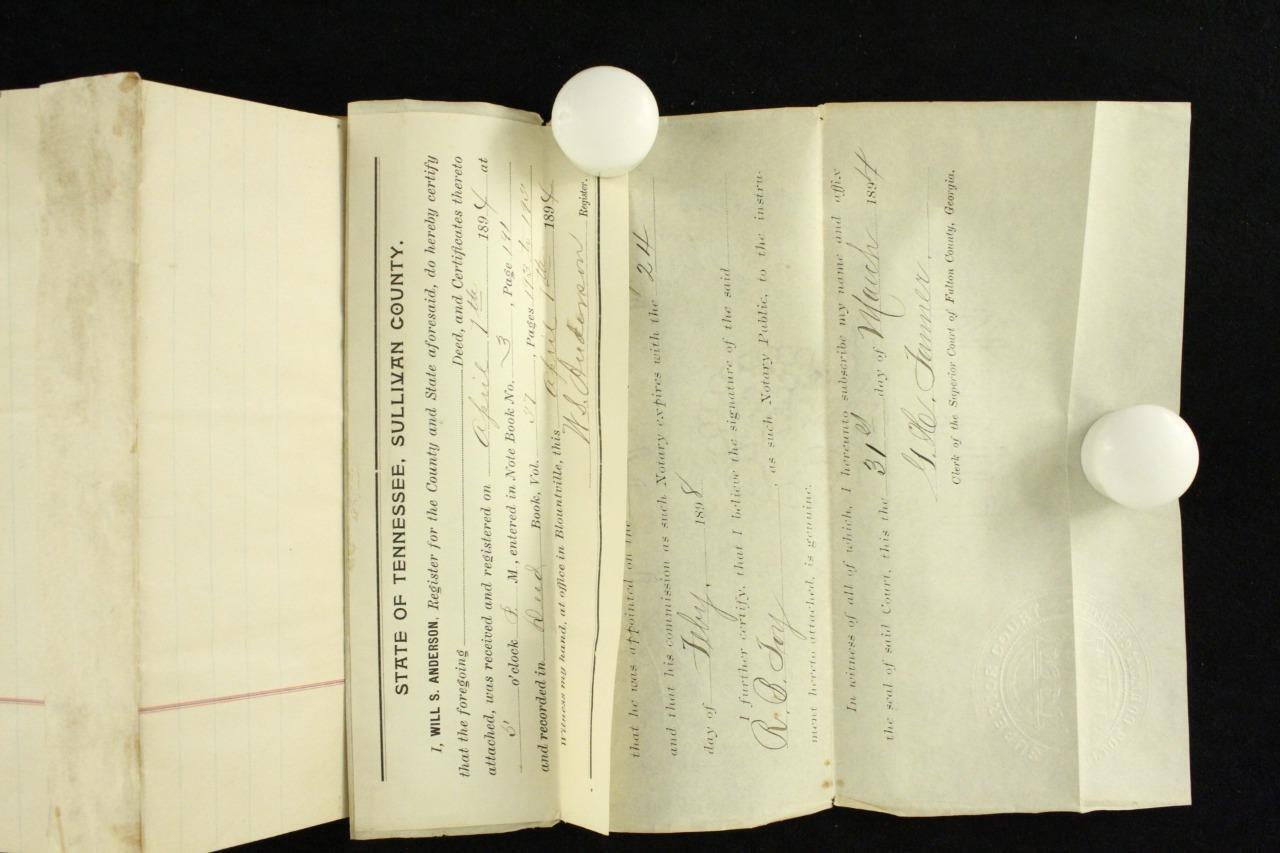 STATE OF TENNESSEE, SULLIVAN COUNTY.
I, WILL S. ANDERSON, Register for the County and State aforesaid, do hereby certify
that the foregoing Deed, and Certificates thereto
attached, was received and registered on April 7th 1894 at
o'clock P. M., entered in Note Book No. 3, Page
and recorded in Deed Book, Vol. 37, Pages
witness my hand, at office in Blountville, this April 1894
W.S. Anderson Register.
that he was appointed on the 24
and that his commission as such Notary expires with the
day of Feby. 1898
I further certify, that I believe the signature of the said
R. B. Toy, as such Notary Public, to the instru-
ment hereto attached, is genuine.
In witness of all of which, I hereunto subscribe my name and affix
the seal of said Court, this the 31st day of March 1894
G. H. Tanner
Clerk of the Superior Court of Fulton County, Georgia.
SUPERIOR COURT